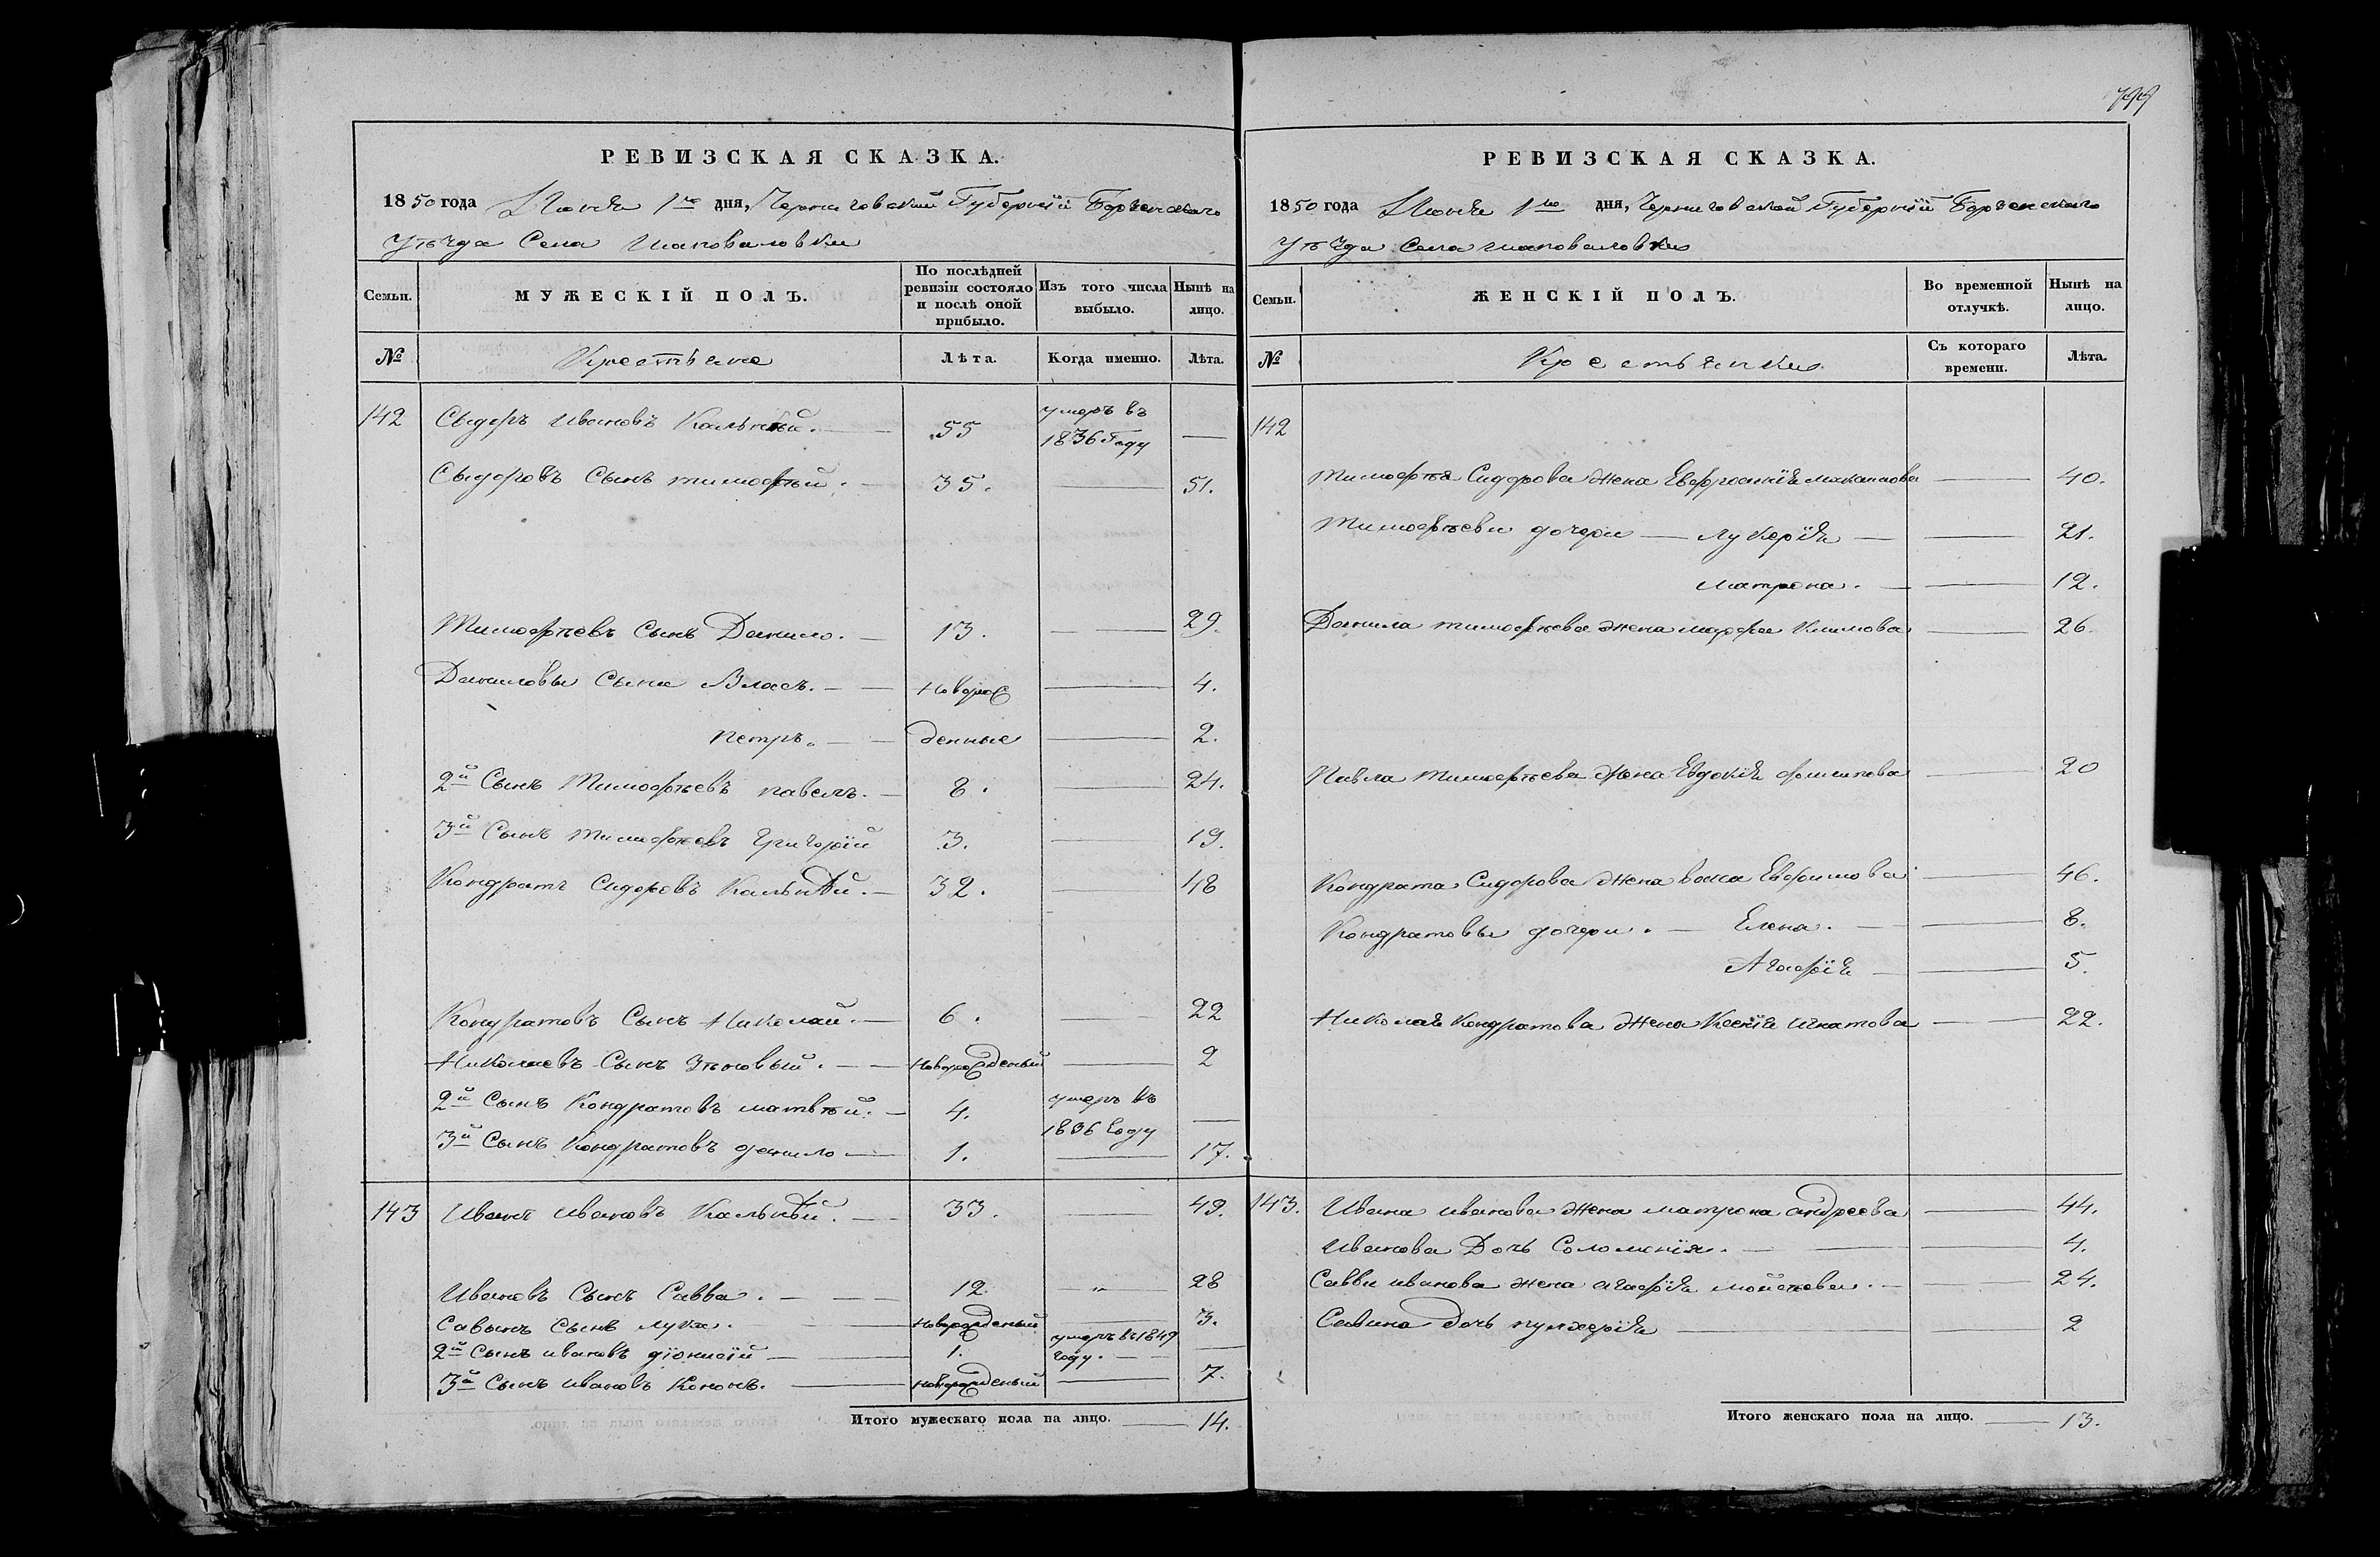 РЕВИЗСКАЯ СКАЗКА.
1850 года Іюня 1го дня, Черниговской Губерніи Борзенскаго
Уѣзда Села Шаповаловки
Семьи. МУЖЕСКІЙ ПОЛЪ. По послѣдней ревизіи состояло и послѣ оной прибыло. Изъ того числа выбыло. Нынѣ на лицо.
№ Крестьяне Лѣта. Когда именно. Лѣта.
142 Сыдоръ Ивановъ 55 умеръ въ 1836 Году —
Сыдоровъ Сынъ тимофѣй. — 35. — 51.
Тимофѣевъ Сынъ Данило. — 13. — 29.
Даниловы Сыны Власъ. — новорож — 4.
петръ. — денные — 2.
2й Сынъ Тимофѣевъ павелъ. — 8. — 24.
3й Сынъ тимофѣевъ Григорій 3. — 19.
Кондратъ Сидоровъ 32. — 48
Кондратовъ Сынъ Николай. — 6. — 22
Николаевъ Сынъ Зѣновый. — новорожденый — 2
2й Сынъ Кондратовъ матвѣй. — 4. умеръ въ 1836 году —
3й Сынъ Кондратовъ данило — 1. — 17.
143 Иванъ Ивановъ 33. — 49.
Ивановъ Сынъ Савва. — 12. — 28
Савынъ Сынъ лука. — новорожденый — 3.
2й Сынъ ивановъ діонисій — 1. умеръ въ 1849 году. —
3й Сынъ ивановъ Кононъ. — новорожденый — 7.
Итого мужескаго пола на лицо. — 14.
799
РЕВИЗСКАЯ СКАЗКА.
1850 года Іюня 1го дня, Черниговской Губерніи Борзенскаго
Уѣзда Села шаповаловки
Семьи. ЖЕНСКІЙ ПОЛЪ. Во временной отлучкѣ. Нынѣ на лицо.
№ Крестьянки Съ котораго времени. Лѣта.
142
Тимофѣя Сидорова жена Евфросинія — 40.
Тимофѣеви дочери — лукерія — 21.
матрона. — 12.
Данила тимофѣева жена марфа Климова — 26.
Павла тимофѣева жена Евдокія филипова — 20
Кондрата Сидорова жена Ефимова — 46.
Кондратовы дочери. — Елена. — 8.
Агафія — 5.
Николая Кондратова жена Ксенія игнатова — 22.
143. Ивана иванова жена матрона андреева — 44.
Иванова Дочь Соломонія. — 4.
Саввы иванова жена агафія мойсѣева. — 24.
Савина дочь пулхерія — 2
Итого женскаго пола на лицо. — 13.